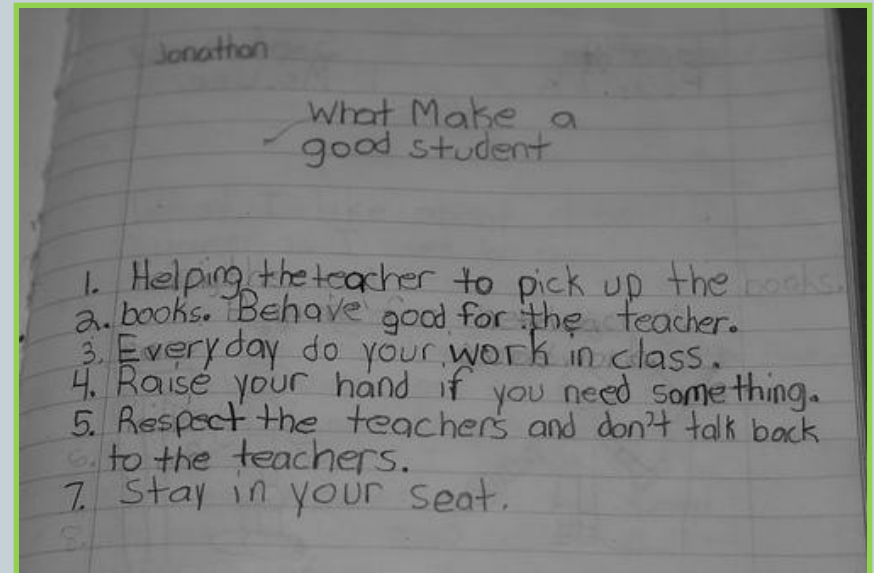 Jonathan
What Make a
good student
1. Helping the teacher to pick up the books.
2. books. Behave good for the teacher.
3. Everyday do your work in class.
4. Raise your hand if you need something.
5. Respect the teachers and don't talk back
6. to the teachers.
7. Stay in your seat.
8.